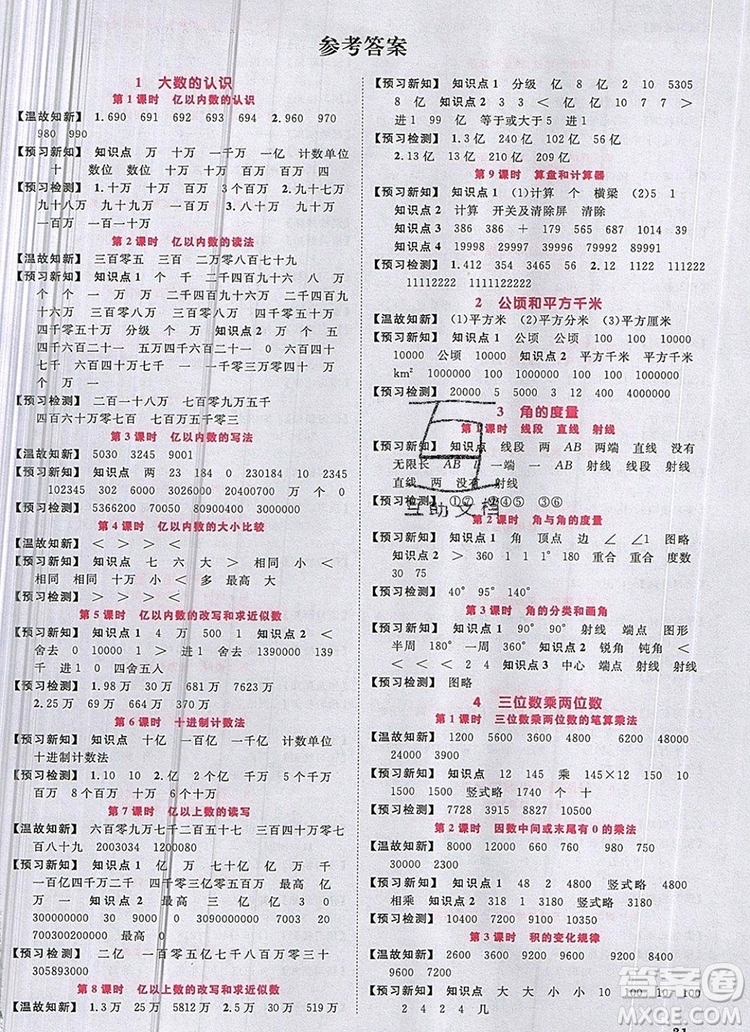 参考答案
1 大数的认识
第1课时 亿以内数的认识
【温故知新】 1.690 691 692 693 694 2.960 970
980 990
【预习新知】 知识点 万 十万 一千万 一亿 计数单位
十 数位 数位 数级 个级 万级 百万 四 四
【预习检测】 1.十万 十万 一百万 2.九十七万
九十八万 九十九万 一百万 九百万 一千万
一百万 一百一十万
第2课时 亿以内数的读法
【温故知新】 三百零五 三百 二千零八 二千零八百七十九
【预习新知】 知识点1 个 千 二千四百九十六 八 万
万 个 一 一万 零五 三百零八万
三十万 三百零八万 三百零八万 四千零五十
四千零五十万 分级 个 万 知识点2 万 个 五
四千六百二十一 五万四千六百二十一 二千零三十
六千零五十 二千零三十万六千零五十 一千八百
七千 一千八百万七千
【预习检测】 二百一十八万 二百七十九万五千
四百六十万零七百 七百八十万五千零三
第3课时 亿以内数的写法
【温故知新】 5030 3245 9001
【预习新知】 知识点 两 23 184 0 10184 10 2345
102345 32000 6301000 20400700 万 个 0
【预习检测】 5366200 70380000 9710000
第4课时 亿以内数的大小比较
【温故知新】 < > > <
【预习新知】 知识点 七 六 大 > 相同 小 <
相同 四千 小 相同 十万 < 小 多 最高 大
【预习检测】 > > < <
第5课时 亿以内数的改写和求近似数
【预习新知】 知识点1 4 万 500 1 知识点2 <
舍去 0 12000 > 进1 舍去 0 1390000 139
千 进1 0 四舍五入
【预习检测】 1.98万 20万 681万 7623万
2.25万 69万 504万 9047万
第6课时 十进制计数法
【预习新知】 知识点 十亿 一百亿 一千亿 计数单位
十进制计数法
【预习检测】 1.10 10 2.亿 亿 千万 百万 5个千万
2个百万 8个十万 6个十亿
第7课时 亿以上数的读写
【温故知新】 六百零九万七千二百零四 五千万零七千
七百八十九 2003034 1200080
【预习新知】 知识点1 亿 亿 万 一千四百三十四
亿四千二百万 四千零三亿零五百零二万 最高 亿
一 万 知识点2 万 亿 3 0 0 30000
3000030000 7 2 0 0 702000000 7 2 3 0 0
700300200000 最高 0
【预习检测】 二亿 一百五亿七千万 三千亿零六百万
305893000
第8课时 亿以上数的改写和求近似数
【温故知新】 1.3万 25万 51万 2.4万 30万 519万
【预习新知】 知识点1 分级 亿 8亿 2 10 5305
8 亿 知识点2 3 < 亿 10亿 9 7 >
进1 99 亿 等于或大于5 进1
【预习检测】 1.3亿 240亿 102亿 56亿
2.13亿 10亿 109亿
第9课时 算盘和计算器
【预习新知】 知识点1 (1)计算 个 横梁 (2)5 1
知识点2 计算 开关及清除屏 清除
知识点3 386 386 + 179 565 1035 1642 39
知识点4 19998 29997 39996 49995
【预习检测】 1.412 354 3465 56 2.1122 111222
11112222
2 公顷和平方千米
【温故知新】 (1)平方米 (2)平方分米 (3)平方厘米
【预习新知】 知识点1 公顷 公顷 100 100 100
10000 公顷 知识点2 平方千米 平方千米
km² 1000 1000 1000 1000000 100
【预习检测】 20000 5 5000 3 12 4000000
3 角的度量
第1课时 线段 直线 射线
【预习新知】 知识点 线段 两 AB 两端 直线 没有
无限长 AB l 一端 一 AB 射线 射线
直线 两 没有 射线 一
【预习检测】 ①⑦ ②④⑤ ③⑥
第2课时 角与角的度量
【预习新知】 知识点1 角 顶点 边 ∠ ∠1 图略
知识点2 > 360 1 1° 180 重合 重合 度数
30 75
【预习检测】 40° 95° 140°
第3课时 角的分类和画角
【预习新知】 知识点1 90° 射线 端点 图形
半周 180° 一周 360° 知识点2 锐角 钝角 <
< < < 知识点3 中心 端点 点 图略
【预习检测】 图略
4 三位数乘两位数
第1课时 三位数乘两位数的笔算乘法
【温故知新】 1200 5600 14000 6000 48000
24000 4000 9000
【预习新知】 知识点 112 12 乘 145×12 1450
1500 10 1500 竖式略 1740
【预习检测】 7728 8910 9112 竖式略
第2课时 因数中间或末尾有0的乘法
【温故知新】 8000 4200 3000 3000 750
24000 81000
【预习新知】 知识点1 48 2 4800 竖式略 4800
相乘 知识点2 竖式略
【预习检测】 10440 10710 10920
第3课时 积的变化规律
【温故知新】 2600 3600 9600 9200 8400
4400 9100 6400
【预习新知】 知识点 大 大 小 小 10 100 10 100
2 4 2 4 几